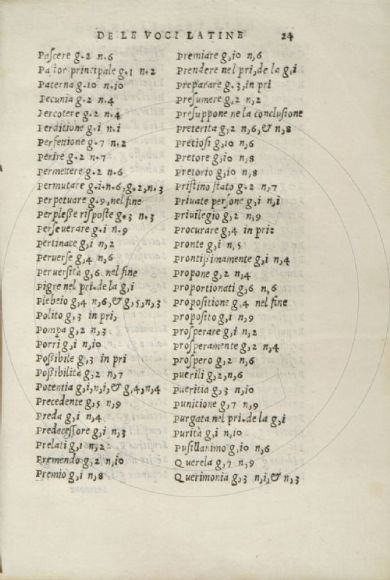 DE LE VOCI LATINE 24
Pascere g.2 n.6
Pastor principale g.1 n.2
Paterna g.10 n,10
Pecunia g.2 n.4
Percotere g.2 n.4
Perditione g.1 n.1
Perfettione g.7 n.2
Perire g.2 n.7
Permettere g.2 n.6
Permutare g.1.n.6,g.2,n.3
Perpetuare g.9, nel fine
Perplesse risposte g.3 n.3
Perseuerare g.1 n.9
Pertinace g,1 n,2
Peruerse g,4 n,6
Peruersità g,6 nel fine
Pigre nel pri.de la g,i
Plebeio g,4 n,6,& g,5,n,3
Polito g,3 in pri,
Pompa g,2 n,3
Porri g,i n,10
Possibile g,3 in pri
Possibilità g,2 n,7
Potentia g,i,n,i,& g,4,n,4
Precedente g,5 n,9
Preda g,i n,4
Predecessore g,i n,3
Prelati g,i n,2
Premendo g,2 n,10
Premio g,i n,8
Premiare g,10 n,6
Prendere nel pri,de la g,i
Preparare g.3,in pri
Presumere g,2 n,2
Presuppone ne la conclusione
Preterita g,2 n,6,& n,8
Pretiosi g,10 n,6
Pretore g,10 n,8
Pretorio g,10 n,8
Pristino stato g.2 n,7
Priuate persone g,i n,i
Priuilegio g,2 n,9
Procurare g,4 in pri
Pronte g,i n,5
Prontissimamente g,i n,4
Propone g,2 n,4
Proportionati g,6 n,6
Propositione g,4 nel fine
Proposito g,i n,9
Prosperare g,i n,2
Prosperamente g,2 n,4
Prospero g,2 n,6
Puerili g,2,n,6
Pueritia g,3 n,10
Punitione g,7 n,9
Purgata nel pri.de la g,i
Purità g,i n,10
Pusillanimo g,10 n,6
Querela g,7 n,9
Querimonia g,3 n,i,& n,3